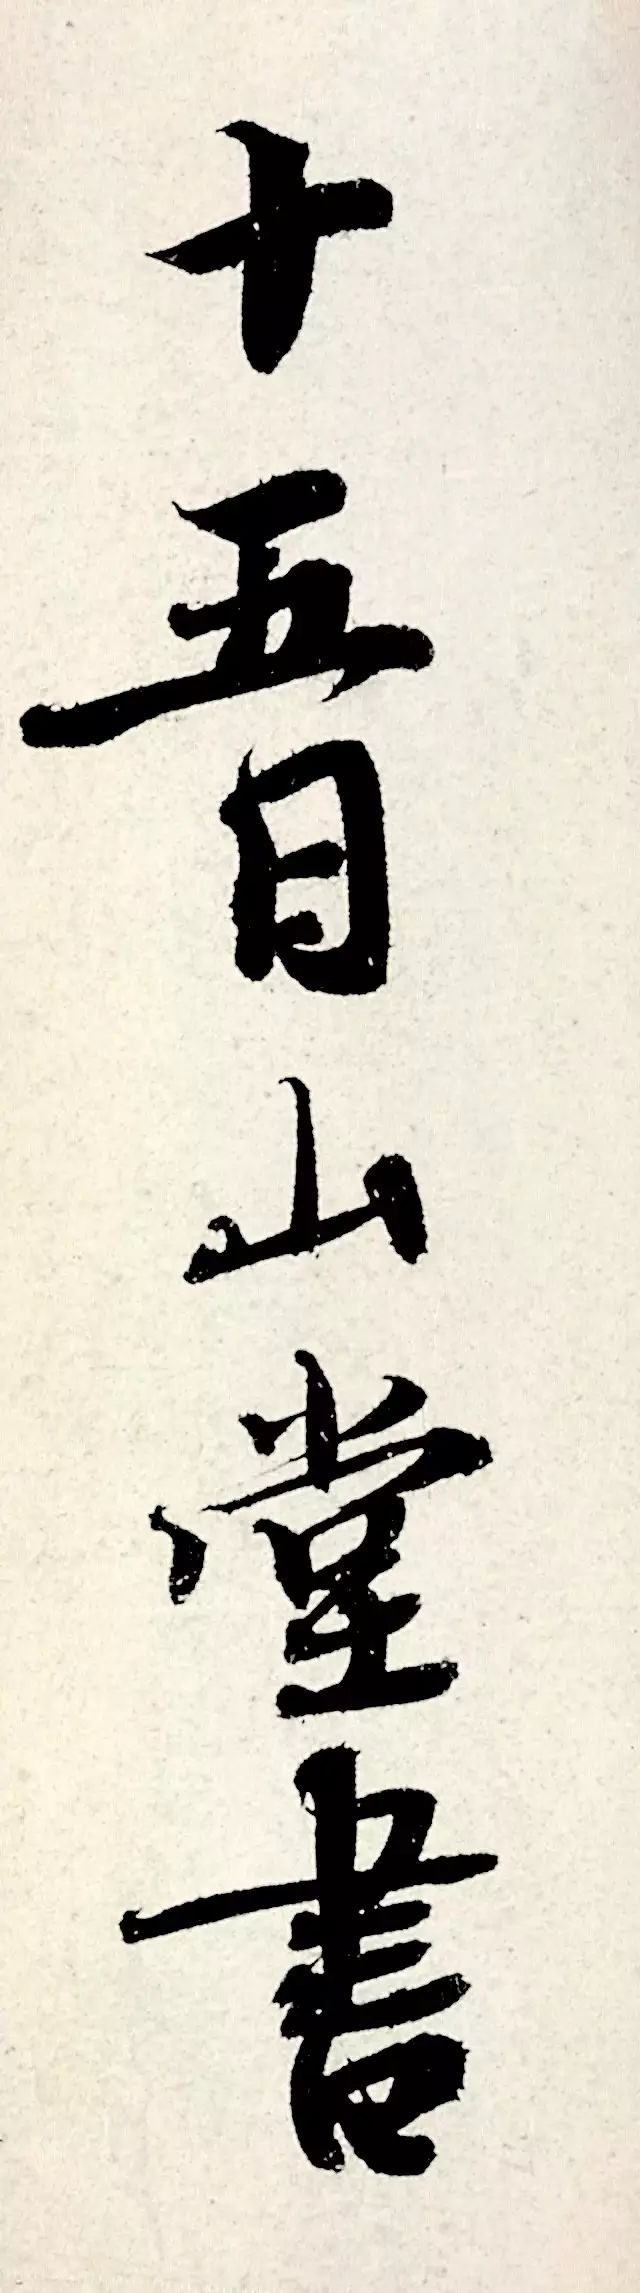 十五日山堂書